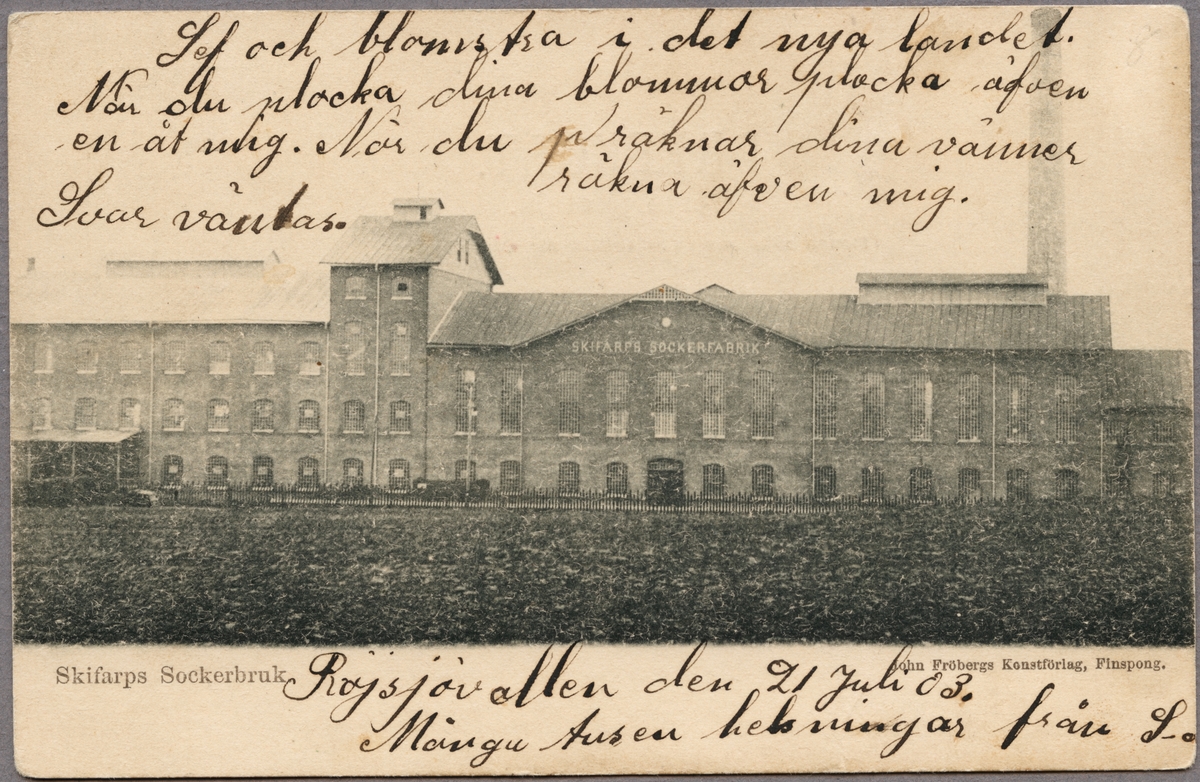 Lef och blomstra i det nya landet.
När du plocka dina blommor plocka äfven
en åt mig. När du räknar dina vänner
räkna äfven mig.
Svar väntas.
SKIFARPS SOCKERFABRIK
Skifarps Sockerbruk
John Fröbergs Konstförlag, Finspong.
Röjsjövallen den 21 Juli 03.
Mångu tusen helsningar från S-.